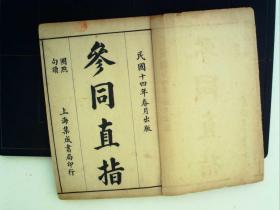 民國十四年春月出版
參同直指
圈點
句讀
上海集成書局印行